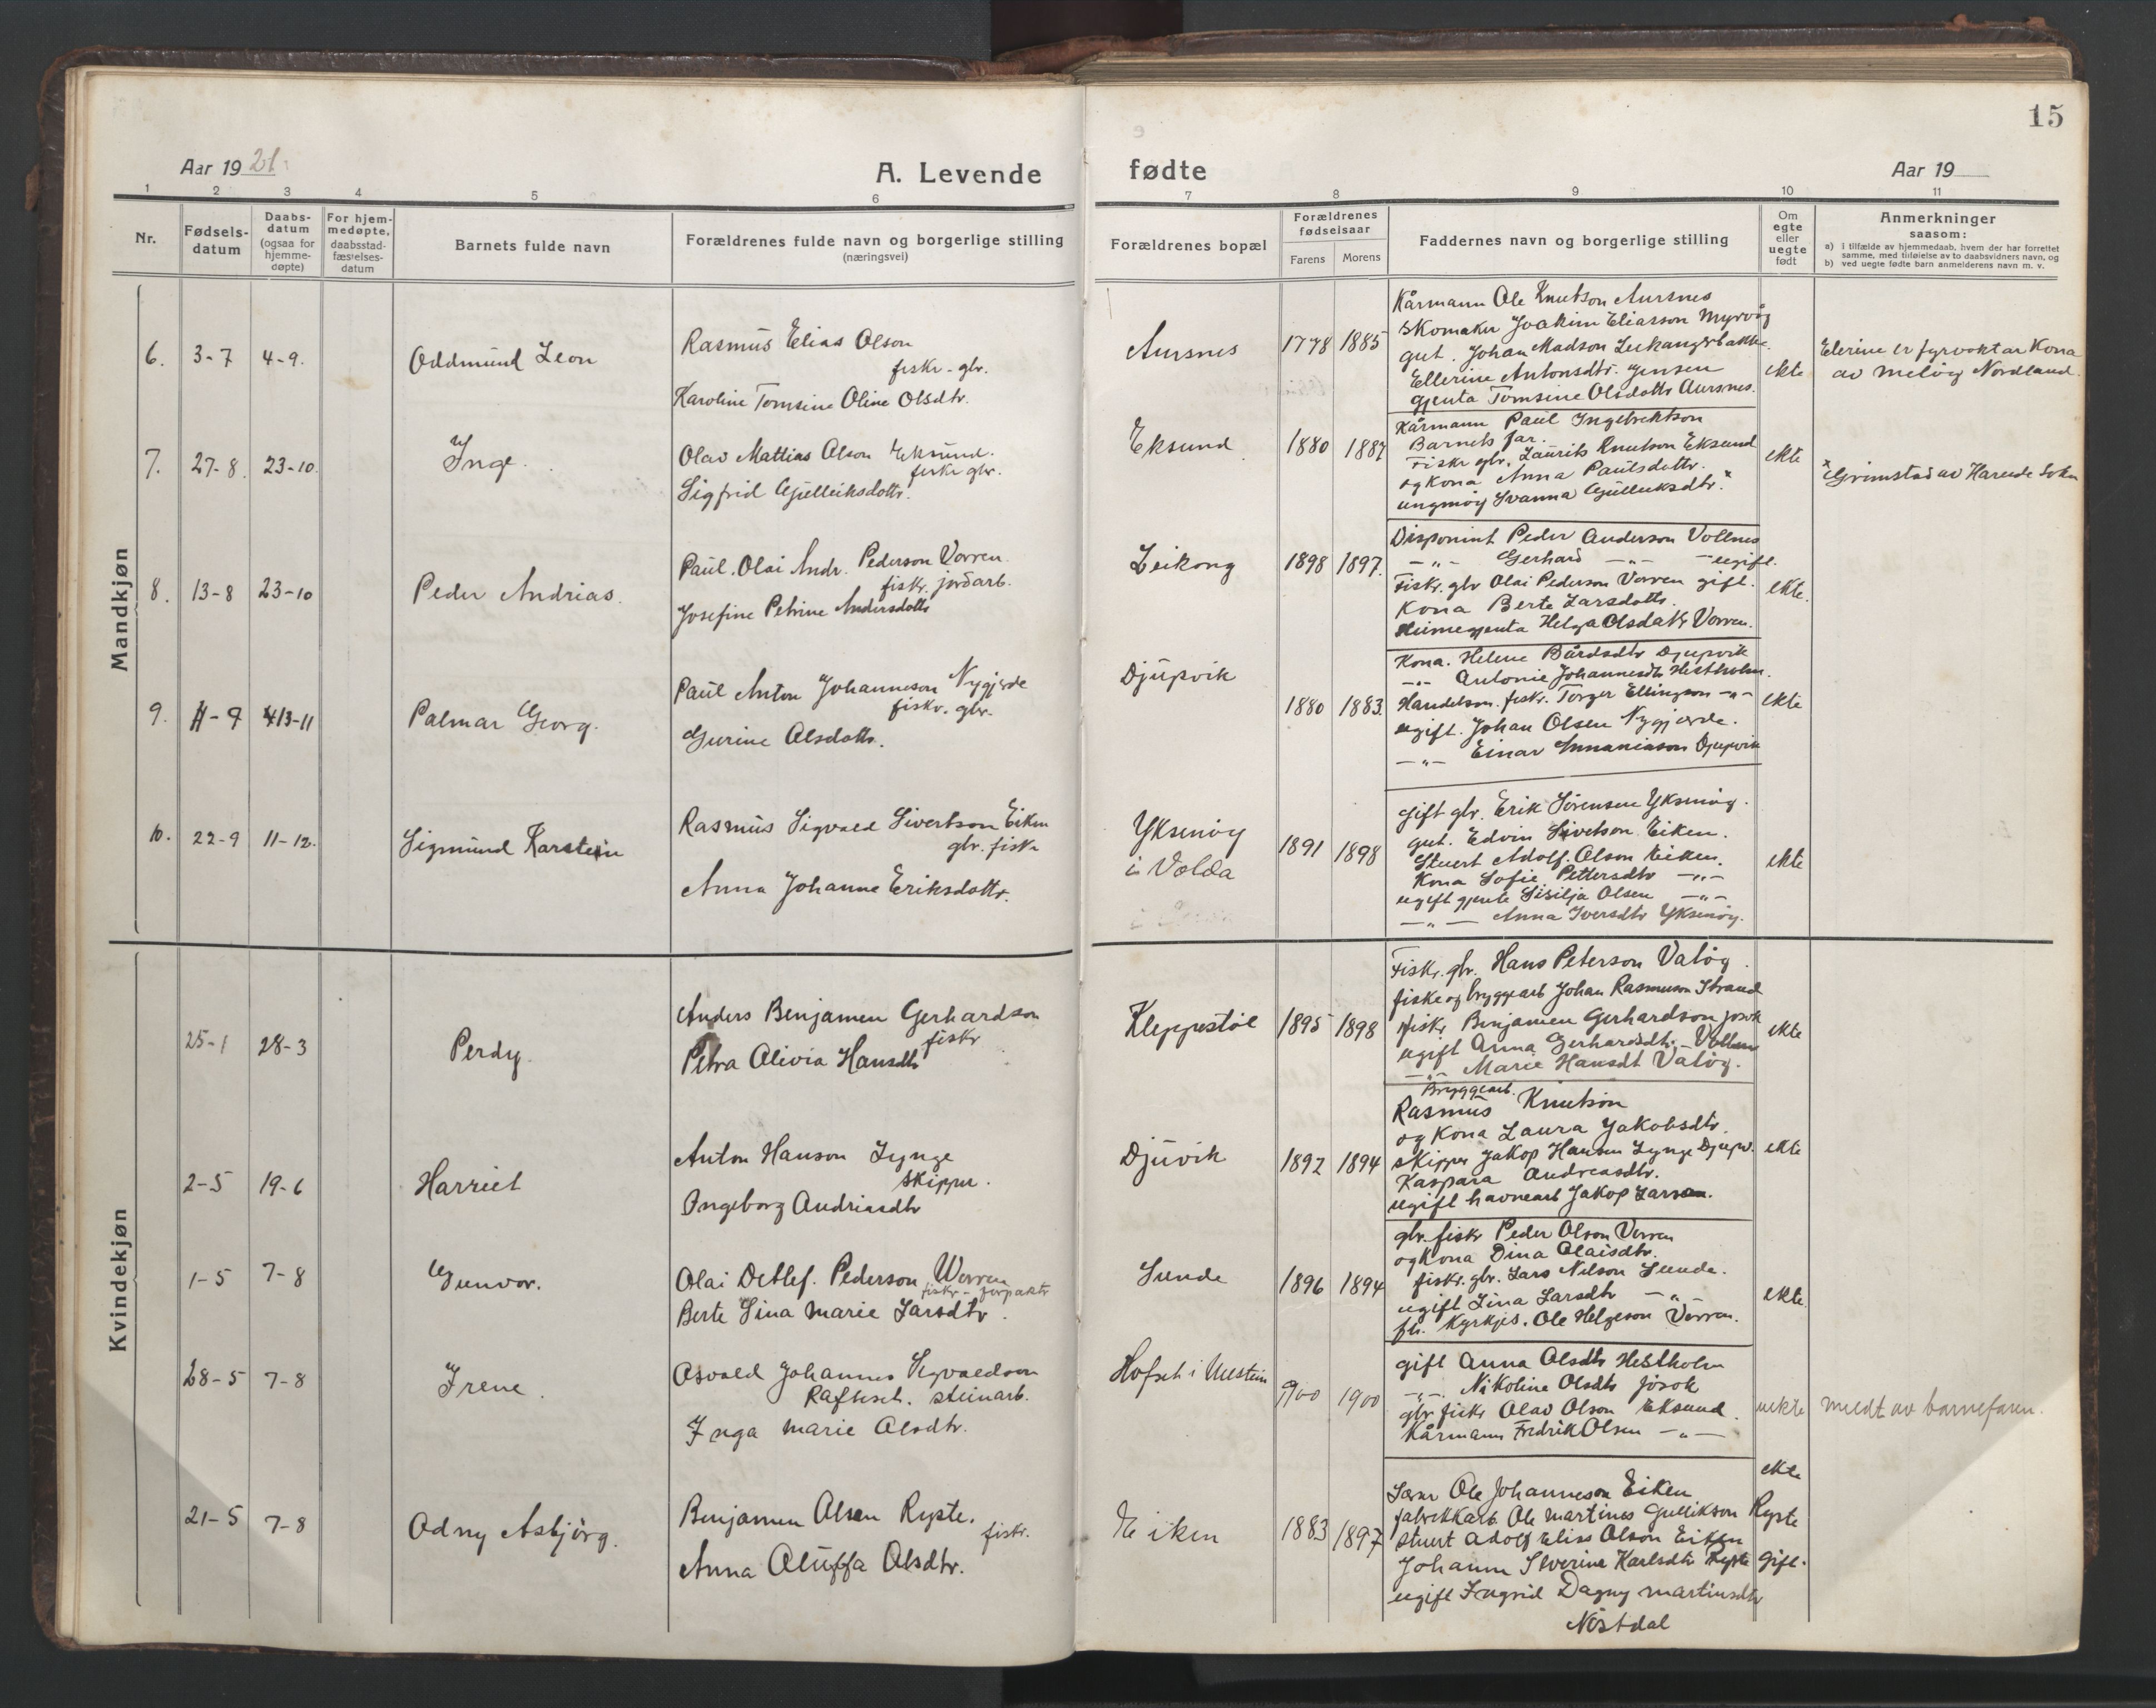 15
Aar 1921
A. Levende
fødte
Aar 19
1 2 3 4 5 6 7 8 9 10 11
Nr.
Fødsels-
datum
Daabs-
datum
(ogsaa for
hjemme-
døpte)
For hjem-
medøpte,
daabsstad-
fæstelses-
datum
Barnets fulde navn
Forældrenes fulde navn og borgerlige stilling
(næringsvei)
Forældrenes bopæl
Forældrenes
fødselsaar
Farens Morens
Faddernes navn og borgerlige stilling
Om
egte
eller
uegte
født
Anmerkninger
saasom:
a) i tilfælde av hjemmedaab, hvem der har forrettet
samme, med tilføielse av to daabsvidners navn, og
b) ved uegte fødte barn anmelderens navn m. v.
Mandkjøn
6. 3-7 4-9. Oddmund Leon
Rasmus Elias Olson
fiskr - gbr.
Karoline Tomsine Oline Olsdtr.
Aursnes 1778 1885
Kårmann Ole Knutson Aursnes
Skomaker Joakim Eliasson Myrvåg
gut. Johan Madson Leikangerbakke.
Ellerine Antonsdtr. Jensen
gjenta Tomsine Olsdottr Aursnes.
ekte
Elerine er fyrvoktar Kona
av Meløy Nordland.
7. 27-8. 23-10. Inge.
Olav Mattias Olson Eksund.
fiskr gbr.
Sigfrid Gjulleiksdottr.
Eksund 1880 1887
Kårmann Paul Ingebrektson
Barnets far.
Fiskr gbr. Laurits Knutson Eksund
og Kona Anna Paulsdottr.
ungmøy Svanna Gjulleiksdtr. x
ekte
x Grimstad av Hareide Sokn
8. 13-8 23-10 Peder Andrias.
Paul. Olai Andr. Pederson Vorren.
fiskr. jordarb.
Josefine Petrine Andersdottr
Leikong 1898 1897.
Disponent Peder Anderson Vollnes
-"- Gerhard -"- ugift.
Fiskr. gbr Olai Pederson Vorren gift.
Kona Berte Larsdottr.
Heimegjenta Helga Olsdatr Vorren.
ekte.
9. 11-9 13-11 Palmar Georg.
Paul Anton Johanneson Nygjerde
fiskr. gbr.
Gurine Olsdottr.
Djupvik 1880 1883.
Kona. Helene Bårdsdtr Djupvik
-"- Antonie Johannesdtr Hestholm.
Handelsm. fiskr. Torger Ellingson -"-
ugift. Johan Olsen Nygjerde.
-"- Einar Annaniason Djupvik
ekte
10. 22-9 11-12. Sigmund Karstein
Rasmus Sigvald Sivertson Eiken
gbr. fiskr
Anna Johanne Eriksdottr.
Yksenøy
i Volda
1891 1898
gift gbr. Erik Sørensen Yksenøy.
gut. Edvin Sivetson Eiken.
Stuert Adolf. Olson Eiken.
Kona Sofie Pettersdtr -"-
ugift gjente Sisilja Olsen -"-
-"- Anna Iversdtr Yksenøy.
ekte
Kvindekjøn
25-1 28-3 Perdy.
Anders Benjamen Gerhardson
fiskr
Petra Olivia Hansdtr
Kleppestøl 1895 1898
Fiskr. gbr. Hans Peterson Valøy.
fiske og bryggearb Johan Rasmuson Strand
fiskr Benjamen Gerhardson Josok
ugift Anna Gerhardsdtr. Vollnes
-"- Marie Hansdt Valøy.
ekte
2-5 19-6 Harriet
Anton Hanson Lynge
Skipper.
Ingeborg Andriasdtr
Djuvik 1892 1894
Bryggearb.
Rasmus Knutson
og Kona Laura Jakobsdtr.
Skipper Jakop Hansen Lynge Djupv.
Kaspara Andreasdtr.
ugift havnearb Jakop Larson.
ekte
1-5 7-8 Gunvor.
Olai Detlef. Pederson Worren
fiskr -
Berte Lina Marie Larsdtr.
Sunde 1896 1894
gbr. fiskr Peder Olson Vorren
og Kona Dina Olaisdtr.
fiskr. gbr. Lars Nilson Sunde.
ugift Lina Larsdtr -"-
fh. Kyrkjes. Ole Helgeson Vorren.
ekte.
28-5 7-8 Irene.
Osvald Johannes Segvaldson
Raftset. Steinarb.
Inga Marie Olsdtr.
Hofset i Ulstein 1900 1900
gift Anna Olsdtr Hestholm
-"-. Nikoline Olsdtr Josok
gbr fiskr Olav Olson Eksund.
Kårmann Fredrik Olsen -"-
uekte
meldt av barnefaren.
21-5 7-8 Odny Asbjörg.
Benjamen Olsen Ryste.
fiskr.
Anna Oluffa Olsdtr.
Eiken 1883 1897
ekte
Ole Johanneson Eiken
fabrikkarb. Ole Martines Gullikson Ryste
Stuert Adolf Elias Olson Eiken
Johanne Severine Karlsdtr Ryste gift.
ugift Ingrid Dagny Martinsdtr
Nøstdal